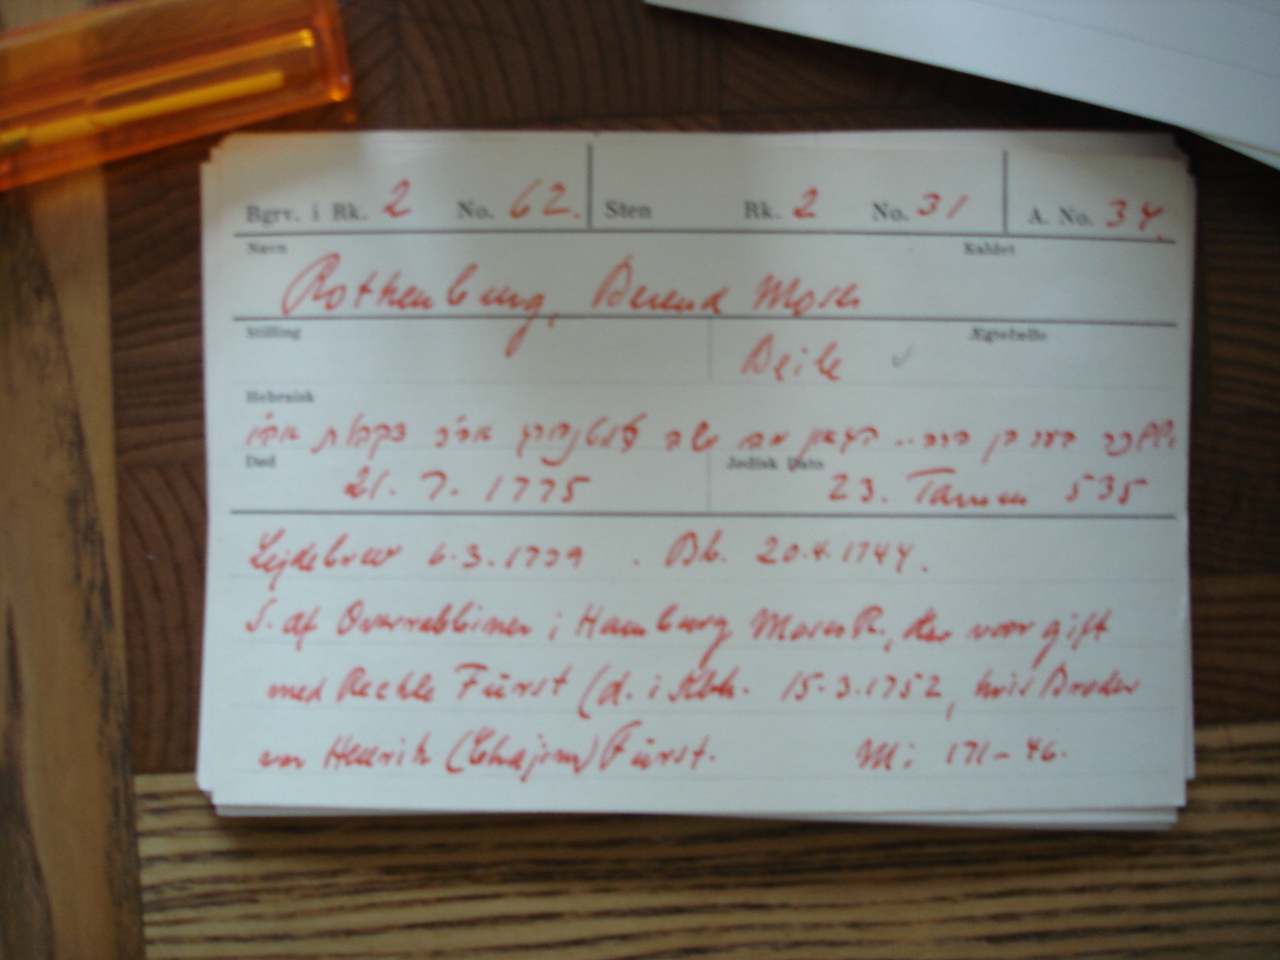 Bgrv. i Rk. 2 No. 62. Sten Rk. 2 No. 31 A. No. 34.
Navn Kaldet
Rothenburg, Berend Moses
Stilling Ægtefælle
Beile ✓
Hebraisk
Død Jødisk Dato
21. 7. 1775 23. Tamus 535
Lejdebrev 6.3.1739 . Bb. 20.4.1744.
S. af Overrabbiner i Hamburg Moses R., der var gift
med Rechle Fürst (d. i Kbh. 15.3.1752, hvis Broder
var Henrik (Chajim) Fürst. M: 171-46.